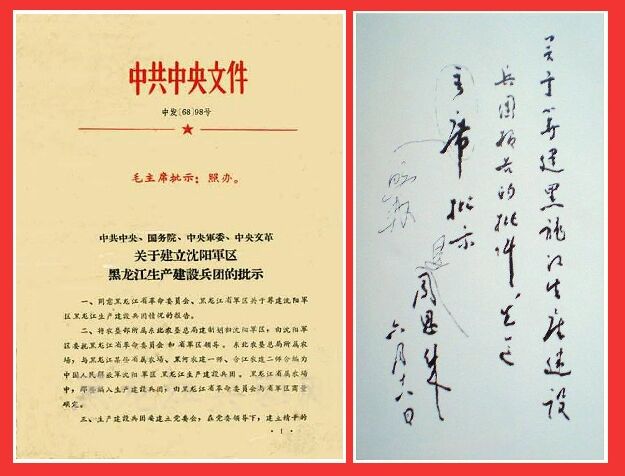 中共中央文件
中发〔68〕98号
毛主席批示：照办。
中共中央、国务院、中央軍委、中央文革
关于建立沈阳軍区
黑龙江生产建設兵团的批示
一、同意黑龙江省革命委員会、黑龙江省軍区关于筹建沈阳軍
区黑龙江生产建設兵团情况的报告。
二、将农垦部所属东北农垦总局建制划归沈阳軍区，由沈阳軍
区委托黑龙江省革命委員会和省軍区領导。东北农垦总局所属农
場，与黑龙江某些省属农場。黑河农建一师、合江农建二师合編为
中国人民解放軍沈阳軍区黑龙江生产建設兵团。黑龙江省属农場
中，編入生产建設兵团，由黑龙江省革命委員会与省軍区商量
研究。
三、生产建設兵团要建立党委会，在党委領导下，建立精干的
· 1 ·
关于筹建黑龙江生产建设
兵团报告的批件，先送
主席批示
周恩来
六月十八日